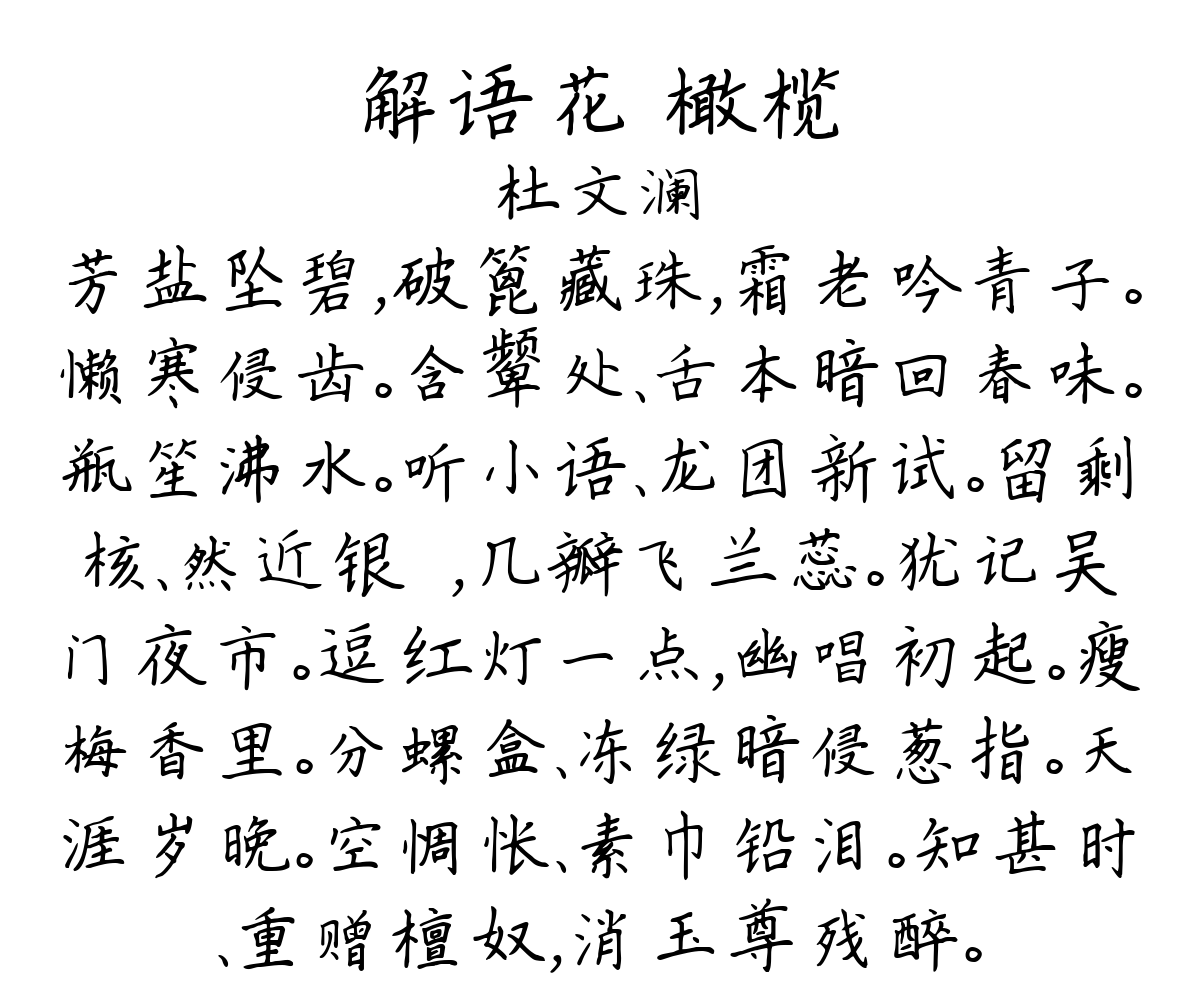 解语花 橄榄
杜文澜
芳盐坠碧,破篦藏珠,霜老吟青子。
懒寒侵齿。含颦处、舌本暗回春味。
瓶笙沸水。听小语、龙团新试。留剩
核、然近银 ,几瓣飞兰蕊。犹记吴
门夜市。逗红灯一点,幽唱初起。瘦
梅香里。分螺盒、冻绿暗侵葱指。天
涯岁晚。空惆怅、素巾铅泪。知甚时
、重赠檀奴,消玉尊残醉。